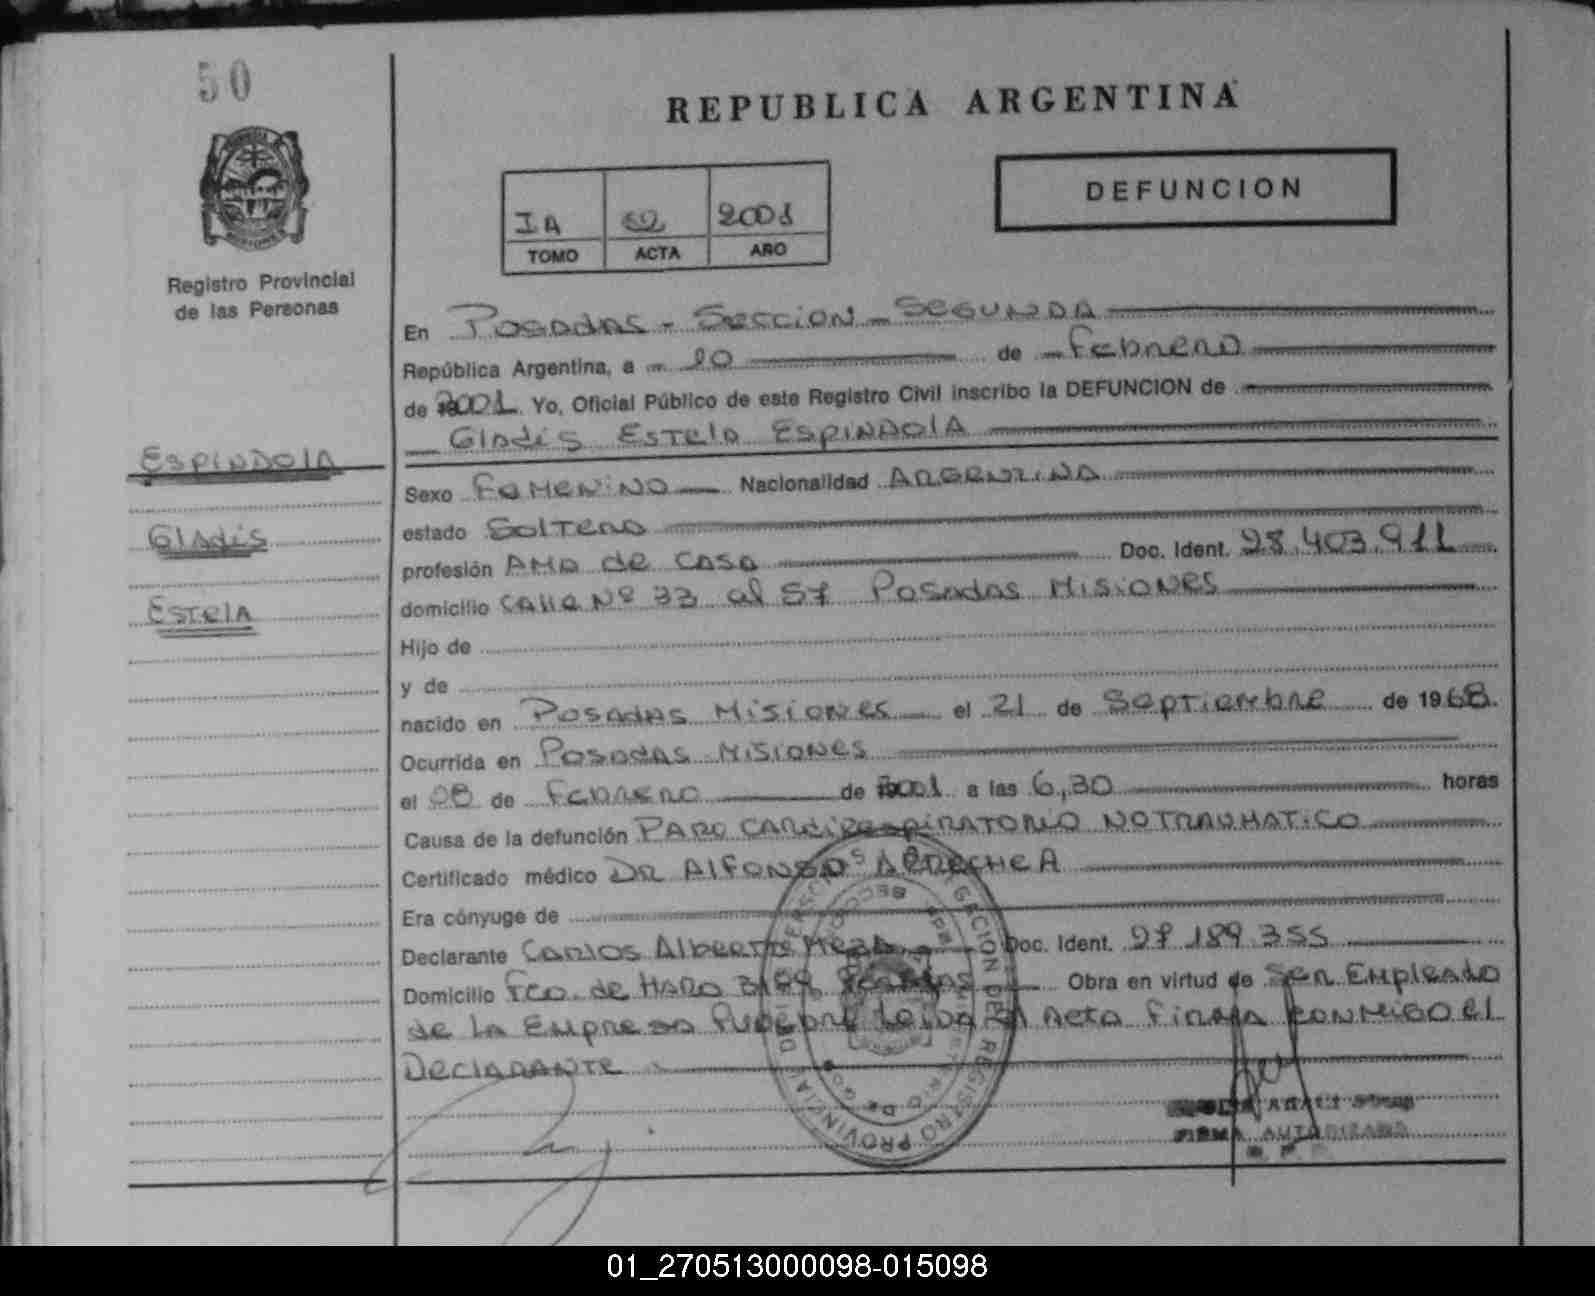 50
REPUBLICA ARGENTINA
DEFUNCION
IA 2001
TOMO ACTA AÑO
Registro Provincial
de las Personas
En Posadas - Seccion - Segunda
República Argentina, a de Febrero
de 2001. Yo, Oficial Público de este Registro Civil inscribo la DEFUNCION de
Gladis Estela Espindola
Espindola
Gladis
Estela
Sexo Femenino Nacionalidad Argentina
estado Soltero
profesión Ama de Casa Doc. Ident. 28.403.911
domicilio Calle Nº 33 al 57 Posadas Misiones
Hijo de
y de
nacido en Posadas Misiones el 21 de Septiembre de 1968.
Ocurrida en Posadas Misiones
el 08 de Febrero de 2001 a las 6,30 horas
Causa de la defunción Paro Cardirespiratorio no traumatico
Certificado médico Dr Alfonso Arrechea
Era cónyuge de
Declarante Carlos Alberto Meza Doc. Ident. 189.355
Domicilio Fco. de Haro Posadas Obra en virtud de Ser Empleado
de la Empresa Funebre Leida el Acta Firma conmigo el
Declarante
DELEGACION DE REGISTRO PROVINCIAL DE
FIRMA AUTORIZADA
01_270513000098-015098